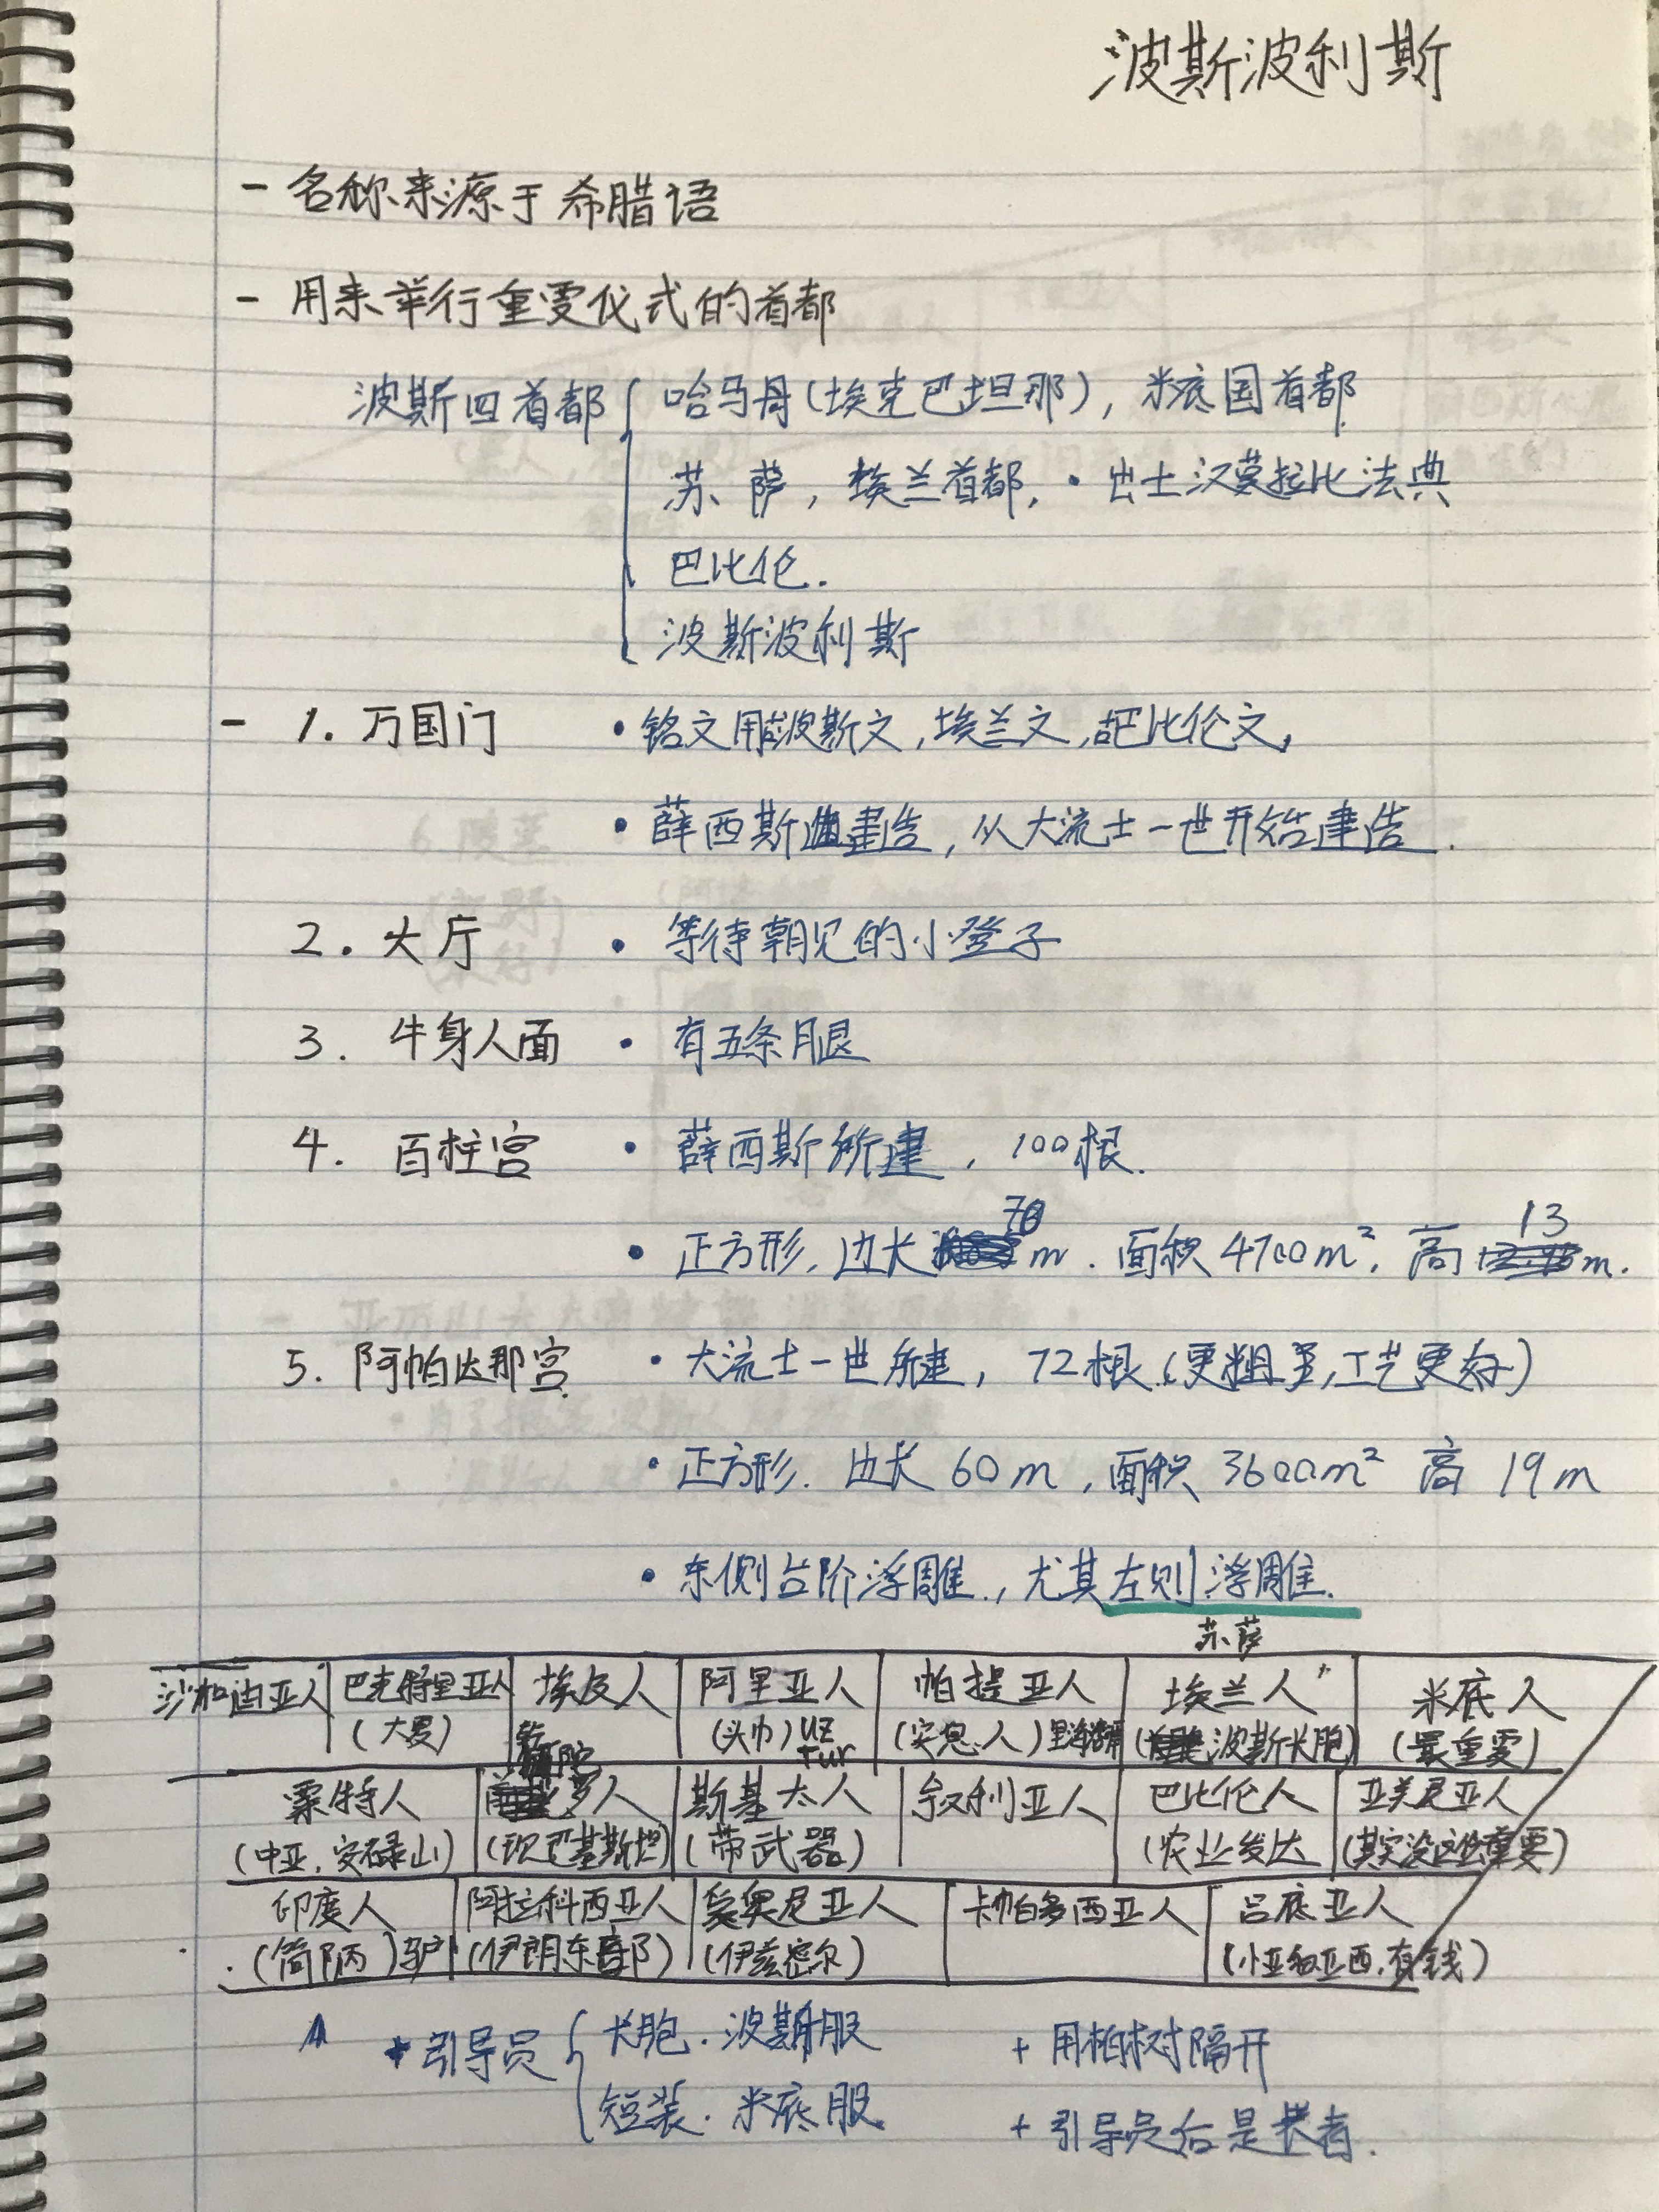 波斯波利斯
- 名称来源于希腊语
- 用来举行重要仪式的首都
波斯四首都 哈马丹(埃克巴坦那), 米底国首都.
苏萨, 埃兰首都, · 出土汉莫拉比法典
巴比伦.
波斯波利斯
- 1. 万国门 • 铭文用波斯文, 埃兰文, 巴比伦文,
• 薛西斯建造, 从大流士一世开始建造.
2. 大厅 • 等待朝见的小登子
3. 牛身人面 • 有五条腿
4. 百柱宫 • 薛西斯所建, 100根.
70 13
• 正方形, 边长 m. 面积 4700m², 高 m.
5. 阿帕达那宫 • 大流士一世所建, 72根 (更粗, 工艺更好)
• 正方形. 边长 60m, 面积 3600m² 高 19m
• 东侧台阶浮雕, 尤其左则浮雕.
苏萨
沙加迪亚人 巴克特里亚人 埃及人 阿里亚人 帕提亚人 埃兰人 米底人
(大夏) (头巾) UZ Tur (安息人) (波斯长胞) (最重要)
粟特人 罗人 斯基太人 叙利亚人 巴比伦人 亚美尼亚人
(中亚, 安禄山) (现巴基斯坦) (带武器) (农业发达 (其实没这么重要)
印度人 阿拉科西亚人 爱奥尼亚人 卡帕多西亚人 吕底亚人
(简陋) 驴 (伊朗东部) (伊兹密尔) (小亚细亚西, 有钱)
引导员 长胞. 波斯服 + 用柏树隔开
短装. 米底服 + 引导员后是长者.